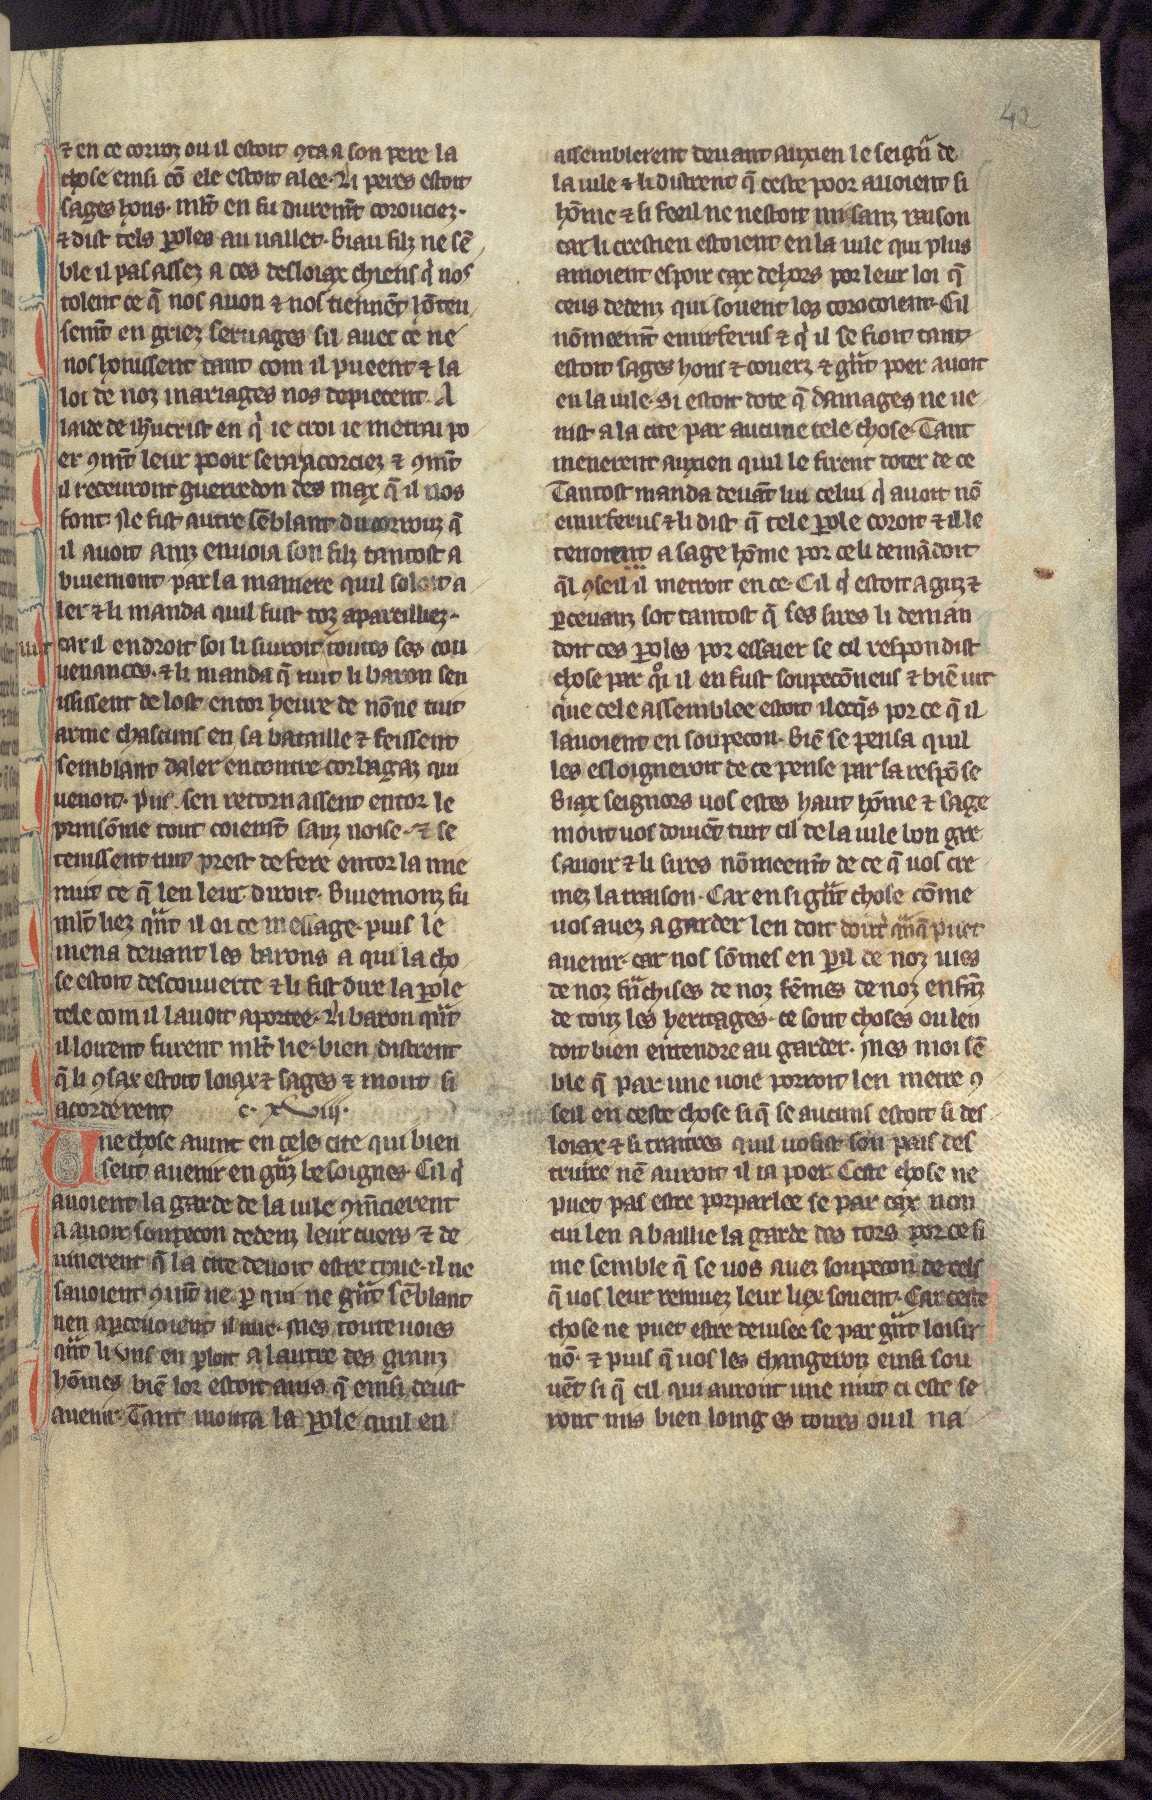 42
⁊ en ce corroz ou il estoit ꝯta a son pere la
chose einsi cō ele estoit alee. Li peres estoit
sages hons. ml̄t en fu durem̄t corouciez.
⁊ dist tels ꝑoles au uallet. Biau filz ne sē
ble il pas assez a ces desloiax chiens q̇ nos
tolent ce q̄ nos auon ⁊ nos tiennēt hōteu
sem̄t en griez seruages sil auec ce ne
nos honissent tant com il pueent ⁊ la
loi de noz mariages nos depiecent. A
laide de ih̄ucrist en q̇ ie croi ie metrai po
er ꝯm̄t leur pooir sera acorciez ⁊ ꝯm̄t
il receuront guerredon des max q̄ il nos
font. Ne fist autre sēblant du corrouz q̄
il auoit ainz enuoia son filz tantost a
buiemont par la maniere quil soloit a
ler ⁊ li manda quil fust toz apareilliez.
car il endroit soi li siuroit toutes ses cou
uenances. ⁊ li manda q̄ tuit li baron sen
ississent de lost entor heure de nōne tuit
arme chascuns en sa bataille ⁊ feissent
semblant daler encontre corbagaz qui
uenoit. Puis sen retornassent entor le
prinsōme tout coiem̄t sanz noise. ⁊ se
tenissent tuit prest de fere entor la mie
nuit ce q̄ len leur diroit. Buiemonz fu
ml̄t liez qn̄t il oi ce message. puis le
mena deuant les barons a qui la cho
se estoit descouuerte ⁊ li fist dire la ꝑole
tele com il lauoit aportee. Li baron qn̄t
il loirent furent ml̄t lie. bien distrent
q̄ li ꝯsax estoit loiax ⁊ sages ⁊ mout si
acorderent c. xviii.
Une chose auint en cele cite qui bien
seut auenir en gn̄z besoignes. Cil q̇
auoient la garde de la uile ꝯm̄cierent
a auoir soupecon dedenz leur cuers ⁊ de
uinerent q̄ la cite deuoit estre traie. il ne
sauoient ꝯm̄t ne ꝑ qui ne gn̄t sēblant
nen aꝑceuoient il mie. Mes toute uoies
qn̄t li vns en ꝑloit a lautre des granz
hōmes biē lor estoit auis q̄ einsi deust
auenir. Tant monta la ꝑole quil en
assemblerent deuant auxien le seign̄ de
la uile ⁊ li distrent q̄ ceste poor auoient si
hōme ⁊ si feeil ne nestoit mi sanz raison
car li crestien estoient en la uile qui plus
amoient espoir cax dehors por leur loi q̄
ceus dedenz qui souent les corocoient. Cil
nōmeem̄t emirferus ⁊ q̇ il se fioit tant
estoit sages hons ⁊ couerz ⁊ gn̄t poer auoit
en la uile. Si estoit dote q̄ damages ne ue
nist a la cite par aucune tele chose. Tant
menerent auxien quil le firent doter de ce
Tantost manda deuāt lui celui q̇ auoit nō
emirferus ⁊ li dist q̄ tele ꝑole coroit ⁊ il le
tenoient a sage hōme por ce li demādoit
q̄l ꝯseil il metroit en ce. Cil q̇ estoit aguz ⁊
ꝑceuanz sot tantost q̄ ses sires li deman
doit ces ꝑoles por essaier se cil respondist
chose par qͦi il en fust soupecōneus ⁊ biē uit
que cele assemblee estoit ilecq̄s por ce q̄ il
lauoient en soupecon. Biē se pensa quil
les esloigneroit de ce pense par sa respōse
Biax seignors uos estes haut hōme ⁊ sage
mout uos doiuēt tuit cil de la uile bon gre
sauoir ⁊ li sires nōmeem̄t de ce q̄ uos cre
mez la traison. Car en si gn̄t chose cōme
uos auez a garder len doit douter qn̄q̄ puet
auenir. car nos sōmes en ꝑil de noz uies
de noz fn̄chises de noz fēmes de noz enfāz
de touz les heritages. ce sont choses ou len
doit bien entendre au garder. Mes moi sē
ble q̄ par une uoie porroit len metre ꝯ
seil en ceste chose si q̄ se aucuns estoit si des
loiax ⁊ si traitres quil uosist son pais des
truire nē auroit il ia poer. Ceste chose ne
puet pas estre porparlee se par cax non
cui len a baillie la garde des tors. por ce si
me semble q̄ se uos auez soupecon de cels
q̄ uos leur remuez leur liex souent. Car ceste
chose ne puet estre deuisee se par gn̄t loisir
nō. ⁊ puis q̄ uos les changeroiz einsi sou
uēt si q̄ cil qui auront une nuit ci este se
ront mis bien loing es tours ou il na